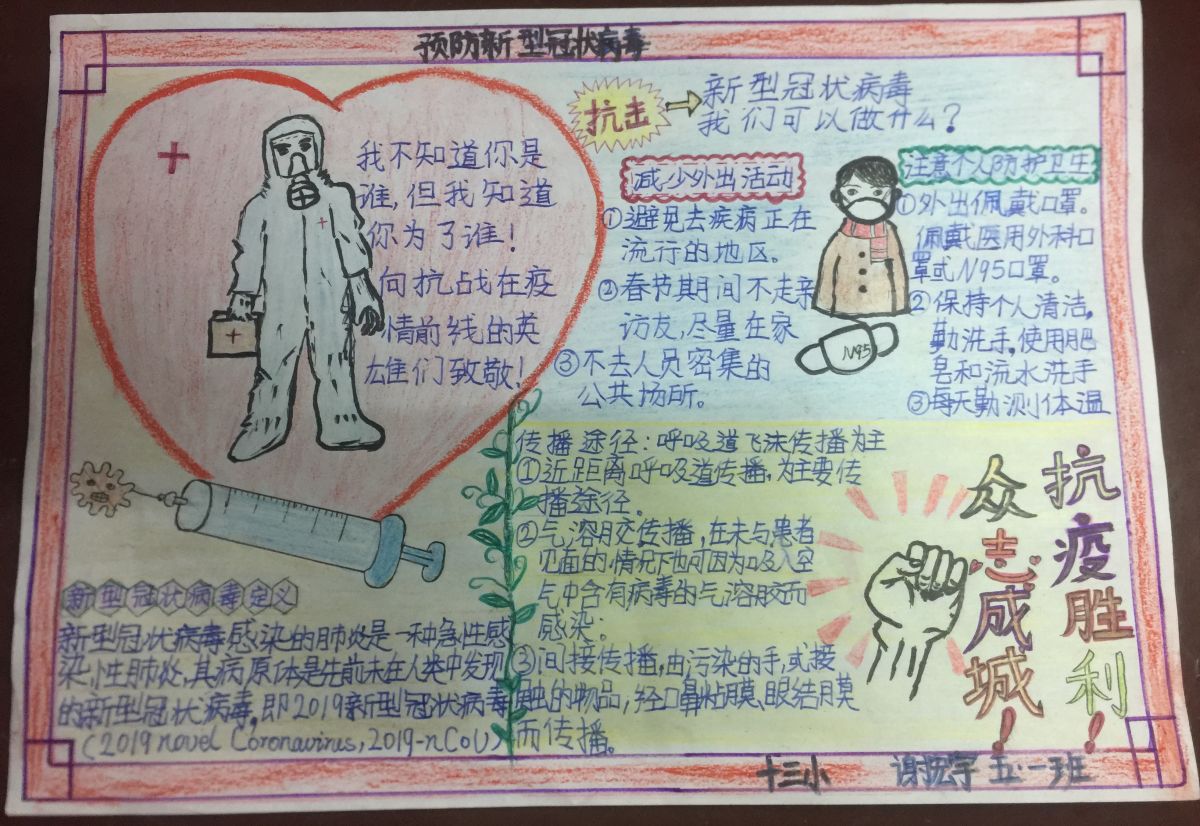 预防新型冠状病毒
我不知道你是
谁,但我知道
你为了谁!
向抗战在疫
情前线的英
雄们致敬!
抗击
新型冠状病毒
我们可以做什么?
减少外出活动
①避免去疾病正在
流行的地区。
②春节期间不走亲
访友,尽量在家
③不去人员密集的
公共场所。
注意个人防护卫生
①外出佩戴口罩。
佩戴医用外科口
罩或N95口罩。
②保持个人清洁,
勤洗手,使用肥
皂和流水洗手
③每天勤测体温
N95
新型冠状病毒定义
新型冠状病毒感染的肺炎是一种急性感
染性肺炎,其病原体是先前未在人类中发现
的新型冠状病毒,即2019新型冠状病毒
(2019 novel Coronavirus,2019-nCoV)
传播途径:呼吸道飞沫传播为主
①近距离呼吸道传播,为主要传
播途径。
②气溶胶传播,在未与患者
见面的情况下也可因为吸入空
气中含有病毒的气溶胶而
感染;
③间接传播,由污染的手,或接
触的物品,经口鼻粘膜、眼结膜
而传播。
众志成城!
抗疫胜利!
十三小
谢 宇 五·一班